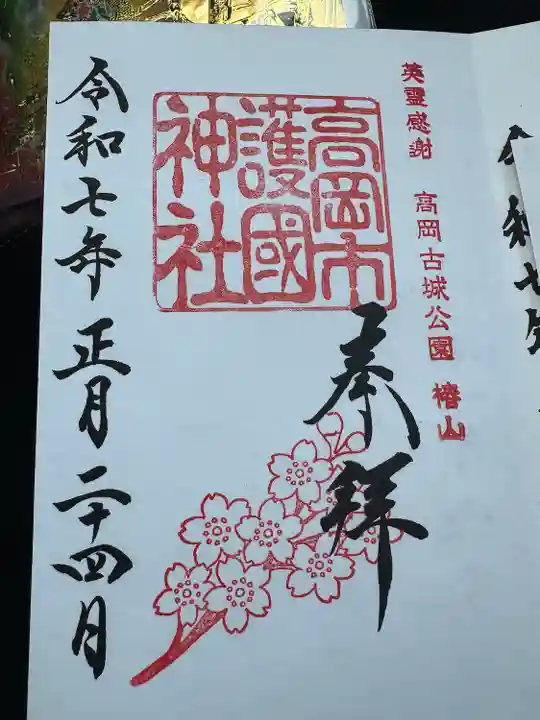 英霊感謝 高岡古城公園 椿山
奉拝
高岡市
護國
神社
令和七年 正月 二十四月